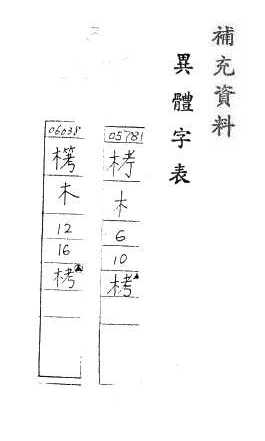 補充資料
異體字表
05781
栲
木
6
10
栲
06038
木
12
16
栲